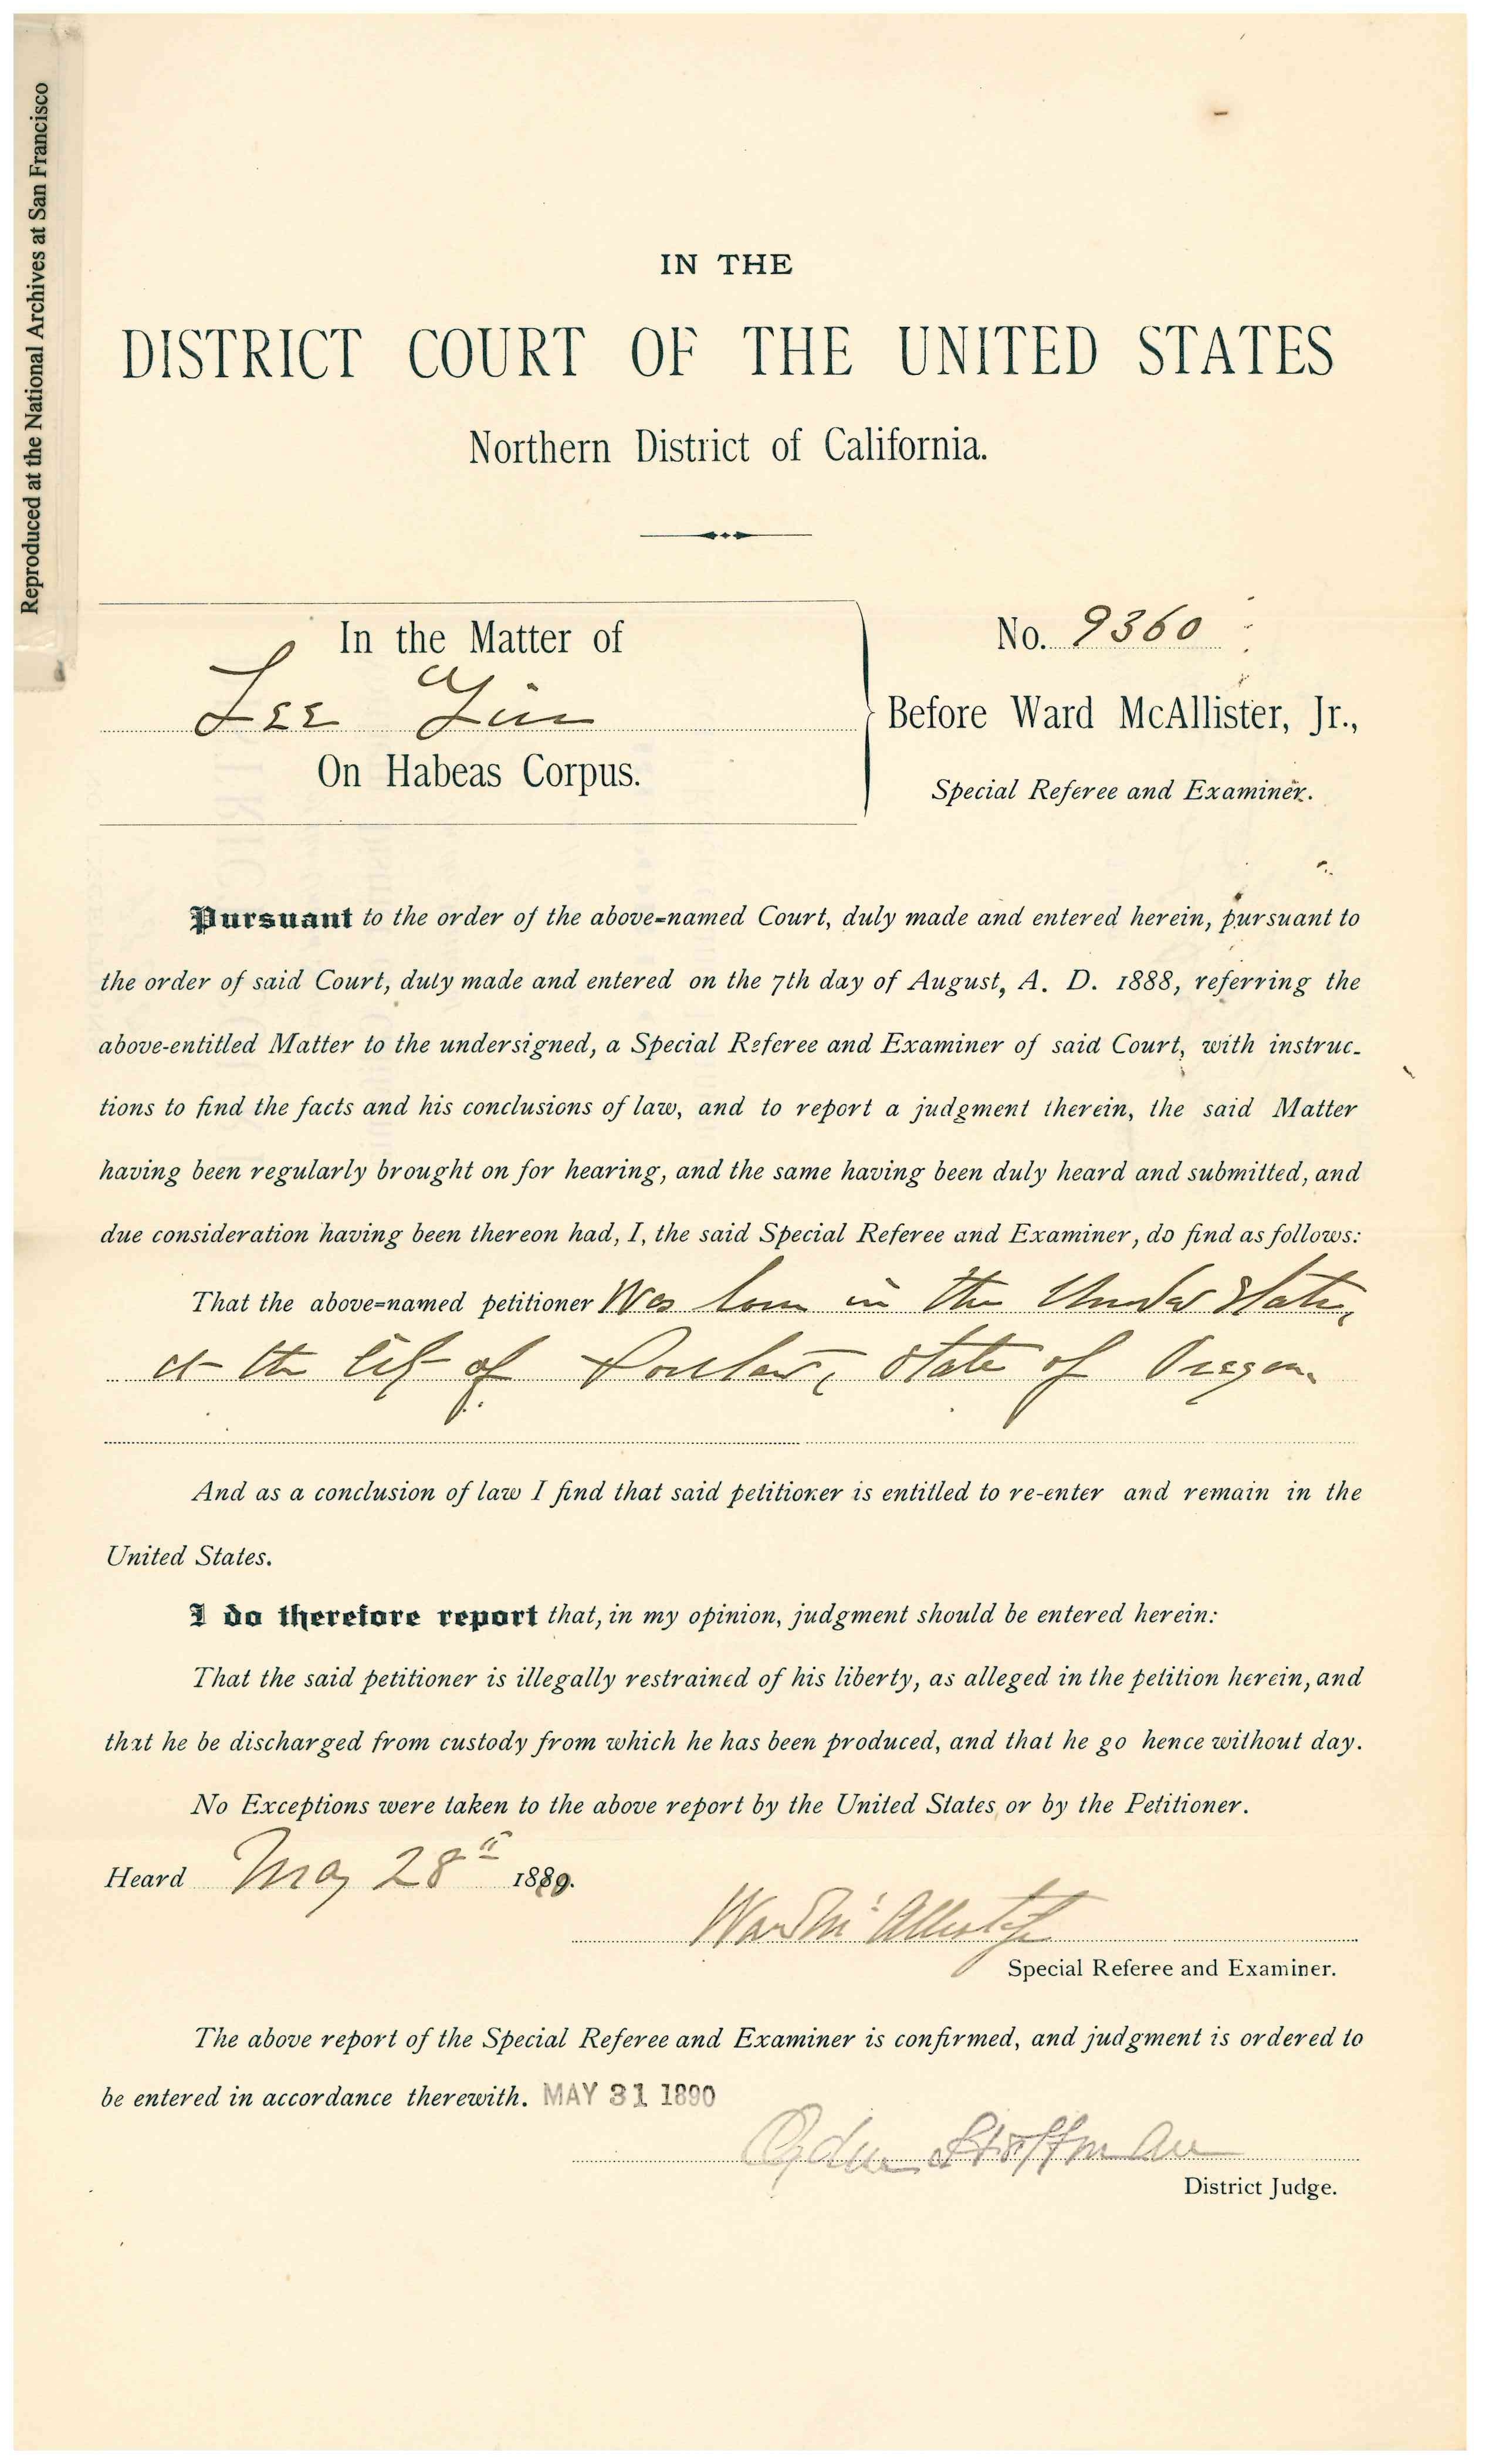 Reproduced at the National Archives at San Francisco
IN THE
DISTRICT COURT OF THE UNITED STATES
Northern District of California.
In the Matter of
Lee Yin
On Habeas Corpus.
No. 9360
Before Ward McAllister, Jr.,
Special Referee and Examiner.
Pursuant to the order of the above-named Court, duly made and entered herein, pursuant to
the order of said Court, duly made and entered on the 7th day of August, A. D. 1888, referring the
above-entitled Matter to the undersigned, a Special Referee and Examiner of said Court, with instruc-
tions to find the facts and his conclusions of law, and to report a judgment therein, the said Matter
having been regularly brought on for hearing, and the same having been duly heard and submitted, and
due consideration having been thereon had, I, the said Special Referee and Examiner, do find as follows:
That the above-named petitioner Was born in the United States,
at the City of Portland, State of Oregon.
And as a conclusion of law I find that said petitioner is entitled to re-enter and remain in the
United States.
I do therefore report that, in my opinion, judgment should be entered herein:
That the said petitioner is illegally restrained of his liberty, as alleged in the petition herein, and
that he be discharged from custody from which he has been produced, and that he go hence without day.
No Exceptions were taken to the above report by the United States or by the Petitioner.
Heard May 28th 1889.
Ward McAllister Jr
Special Referee and Examiner.
The above report of the Special Referee and Examiner is confirmed, and judgment is ordered to
be entered in accordance therewith. MAY 31 1890
Ogden Hoffman
District Judge.